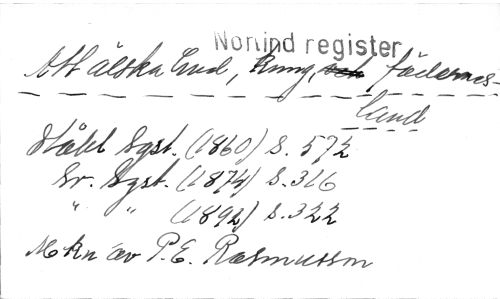 Nonind register
Att älska Gud, kung, och fädernes-
land
Ståbl Sgst. (1860) S. 572
Sv. Sgst. (1874) S. 316
" " (1892) S. 322
Mskn av P.E. Rasmusson